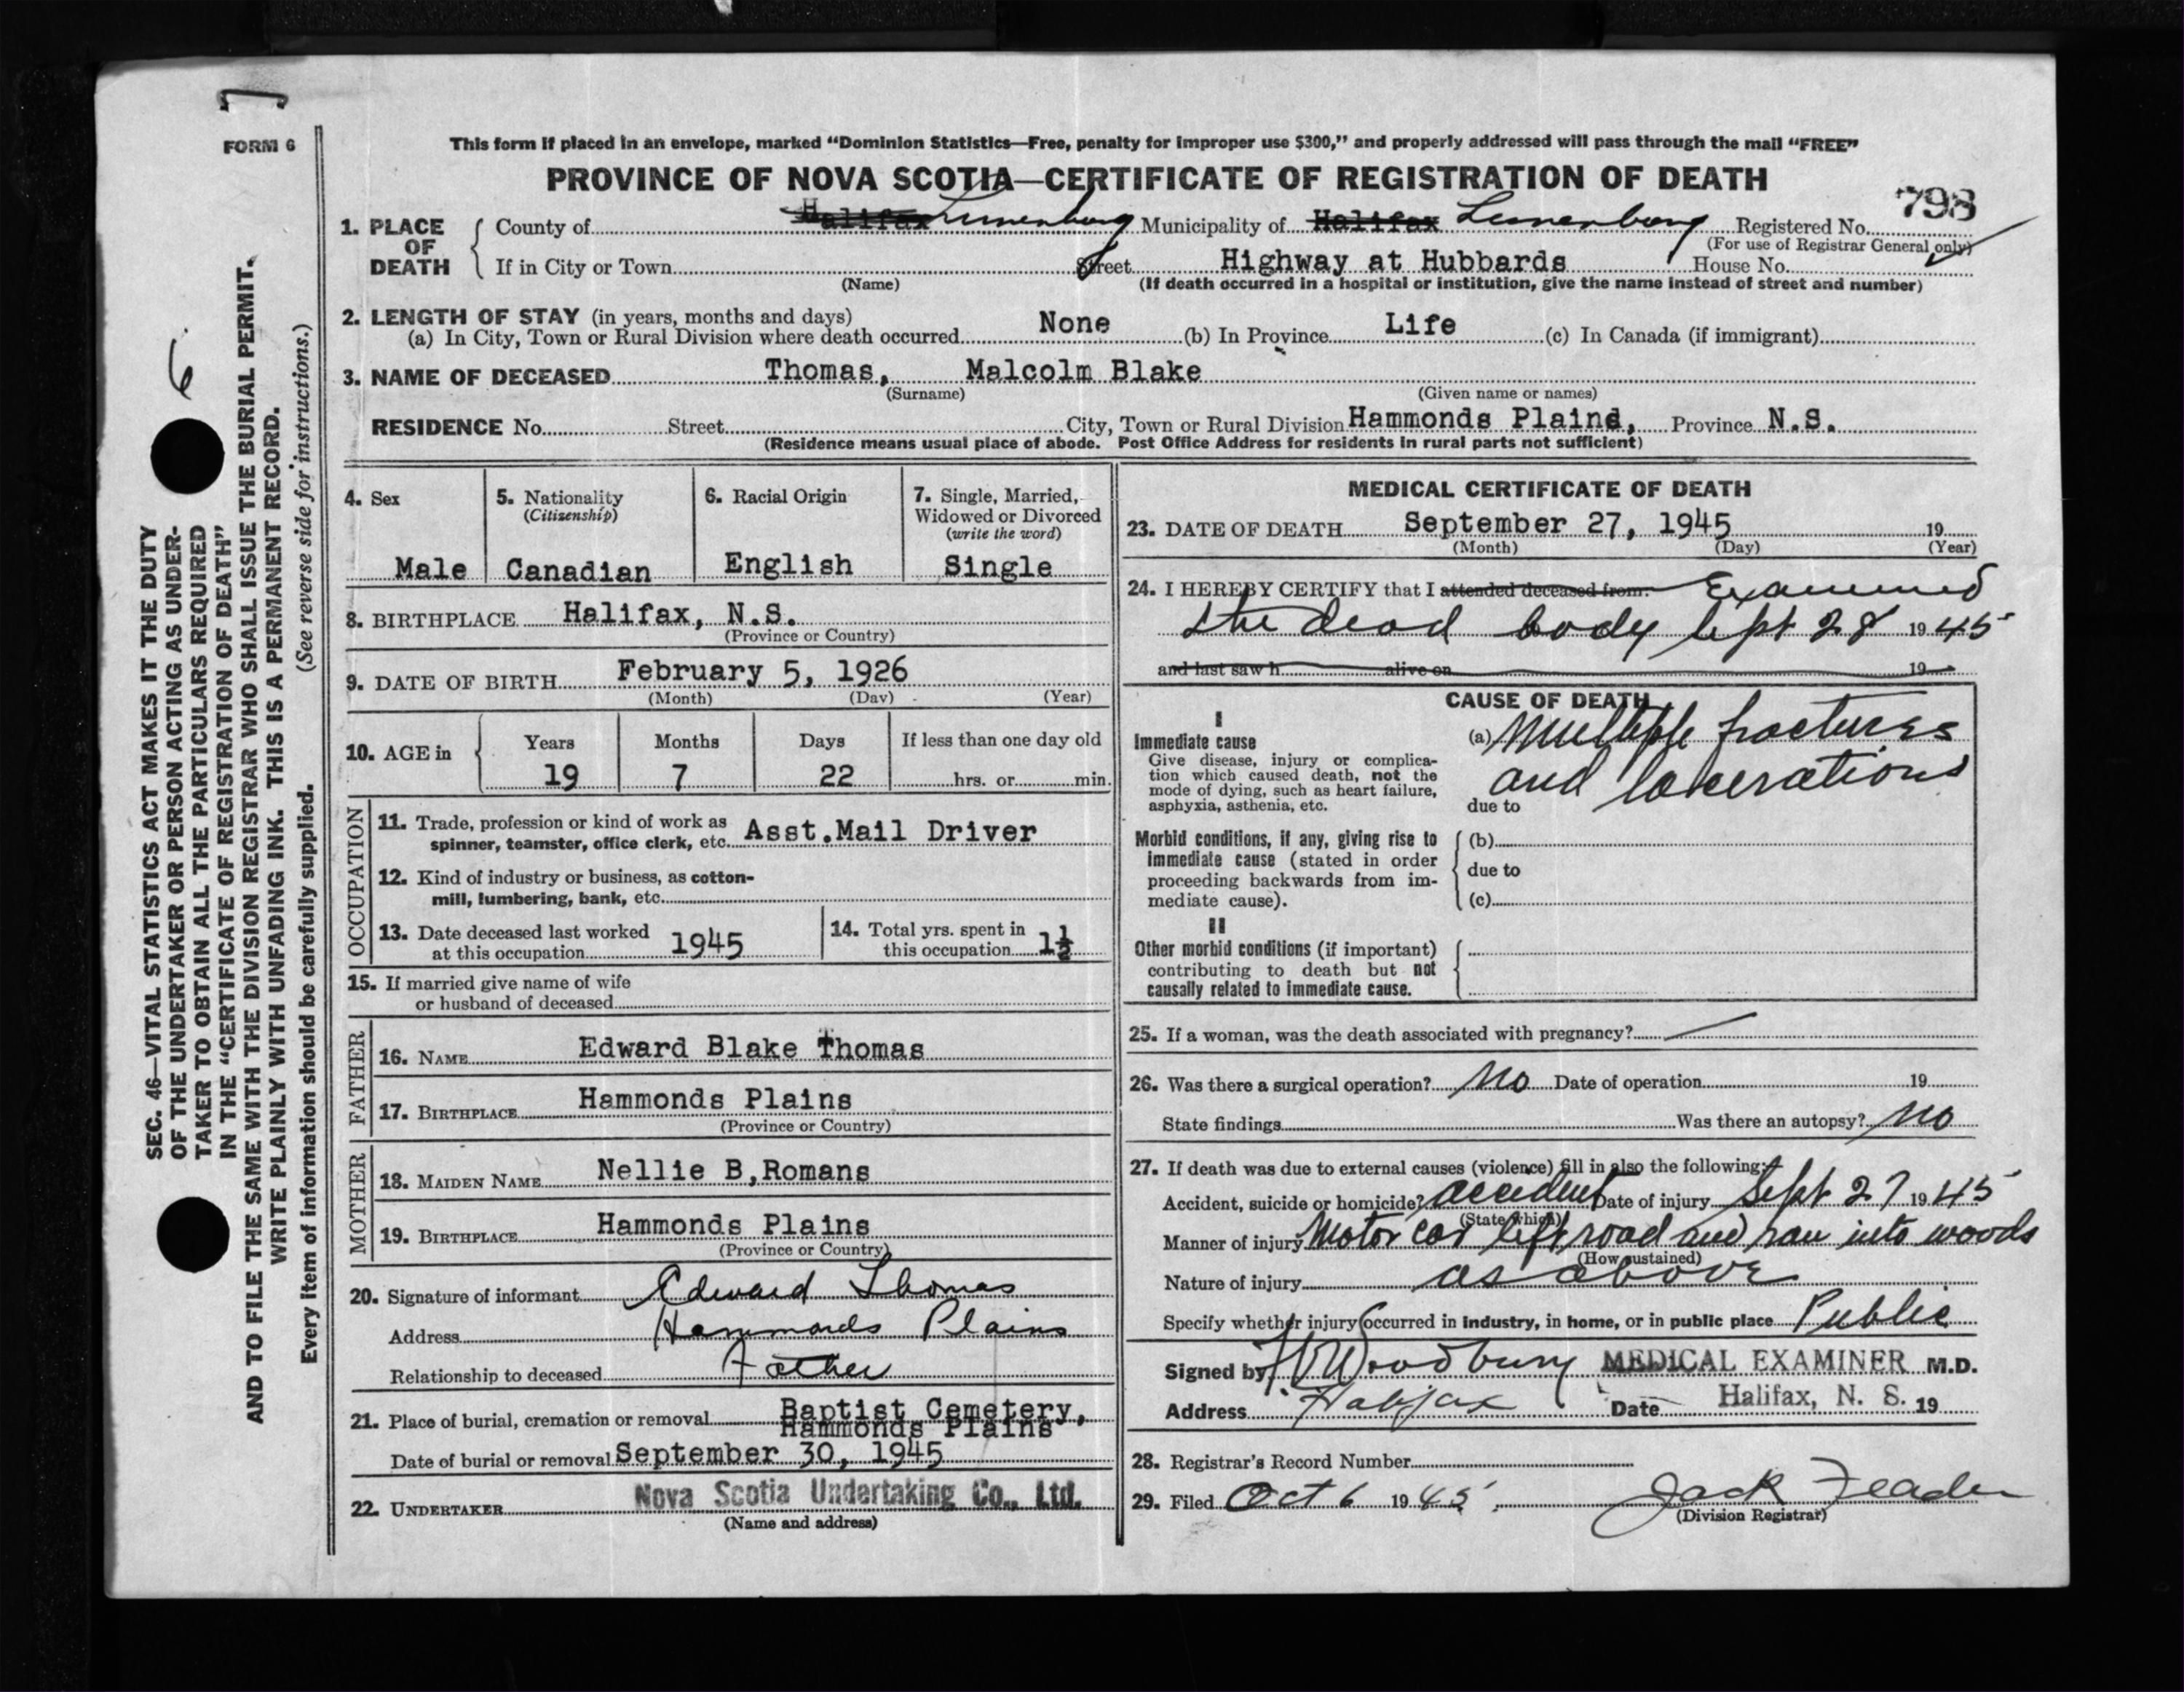 FORM 6
This form if placed in an envelope, marked “Dominion Statistics—Free, penalty for improper use $300,” and properly addressed will pass through the mail “FREE”
PROVINCE OF NOVA SCOTIA—CERTIFICATE OF REGISTRATION OF DEATH
798
1. PLACE OF DEATH County of Halifax Lunenburg Municipality of Halifax Lunenburg Registered No.
(For use of Registrar General only)
If in City or Town Street Highway at Hubbards House No.
(Name) (If death occurred in a hospital or institution, give the name instead of street and number)
2. LENGTH OF STAY (in years, months and days)
(a) In City, Town or Rural Division where death occurred None (b) In Province Life (c) In Canada (if immigrant)
3. NAME OF DECEASED Thomas, Malcolm Blake
(Surname) (Given name or names)
RESIDENCE No. Street City, Town or Rural Division Hammonds Plains, Province N.S.
(Residence means usual place of abode. Post Office Address for residents in rural parts not sufficient)
4. Sex 5. Nationality 6. Racial Origin 7. Single, Married,
(Citizenship) Widowed or Divorced
(write the word)
Male Canadian English Single
8. BIRTHPLACE Halifax, N.S.
(Province or Country)
9. DATE OF BIRTH February 5, 1926
(Month) (Day) (Year)
10. AGE in Years Months Days If less than one day old
19 7 22 hrs. or min.
OCCUPATION
11. Trade, profession or kind of work as
spinner, teamster, office clerk, etc. Asst.Mail Driver
12. Kind of industry or business, as cotton-
mill, lumbering, bank, etc.
13. Date deceased last worked
at this occupation 1945
14. Total yrs. spent in
this occupation 1½
15. If married give name of wife
or husband of deceased
FATHER
16. NAME Edward Blake Thomas
17. BIRTHPLACE Hammonds Plains
(Province or Country)
MOTHER
18. MAIDEN NAME Nellie B,Romans
19. BIRTHPLACE Hammonds Plains
(Province or Country)
20. Signature of informant Edward Thomas
Address Hammonds Plains
Relationship to deceased Father
21. Place of burial, cremation or removal Baptist Cemetery,
Hammonds Plains
Date of burial or removal September 30, 1945
22. UNDERTAKER Nova Scotia Undertaking Co., Ltd.
(Name and address)
MEDICAL CERTIFICATE OF DEATH
23. DATE OF DEATH September 27, 1945 19
(Month) (Day) (Year)
24. I HEREBY CERTIFY that I attended deceased from: Examined
the dead body Sept 28 1945
and last saw h alive on 19
CAUSE OF DEATH
I
Immediate cause (a) Multiple fractures
Give disease, injury or complica-
tion which caused death, not the
mode of dying, such as heart failure,
asphyxia, asthenia, etc.
and lacerations
due to
Morbid conditions, if any, giving rise to (b)
immediate cause (stated in order
proceeding backwards from im- due to
mediate cause). (c)
II
Other morbid conditions (if important)
contributing to death but not
causally related to immediate cause.
25. If a woman, was the death associated with pregnancy?
26. Was there a surgical operation? No Date of operation 19
State findings Was there an autopsy? No
27. If death was due to external causes (violence) fill in also the following:
Accident, suicide or homicide? accident Date of injury Sept 27 1945
(State which)
Manner of injury Motor car left road and ran into woods
(How sustained)
Nature of injury as above
Specify whether injury occurred in industry, in home, or in public place Public
Signed by Woodbury MEDICAL EXAMINER M.D.
Address Halifax Date Halifax, N. S. 19
28. Registrar's Record Number
29. Filed Oct 6 1945 Jack
(Division Registrar)
6
SEC. 46—VITAL STATISTICS ACT MAKES IT THE DUTY
OF THE UNDERTAKER OR PERSON ACTING AS UNDER-
TAKER TO OBTAIN ALL THE PARTICULARS REQUIRED
IN THE “CERTIFICATE OF REGISTRATION OF DEATH”
AND TO FILE THE SAME WITH THE DIVISION REGISTRAR WHO SHALL ISSUE THE BURIAL PERMIT.
WRITE PLAINLY WITH UNFADING INK. THIS IS A PERMANENT RECORD.
Every item of information should be carefully supplied. (See reverse side for instructions.)